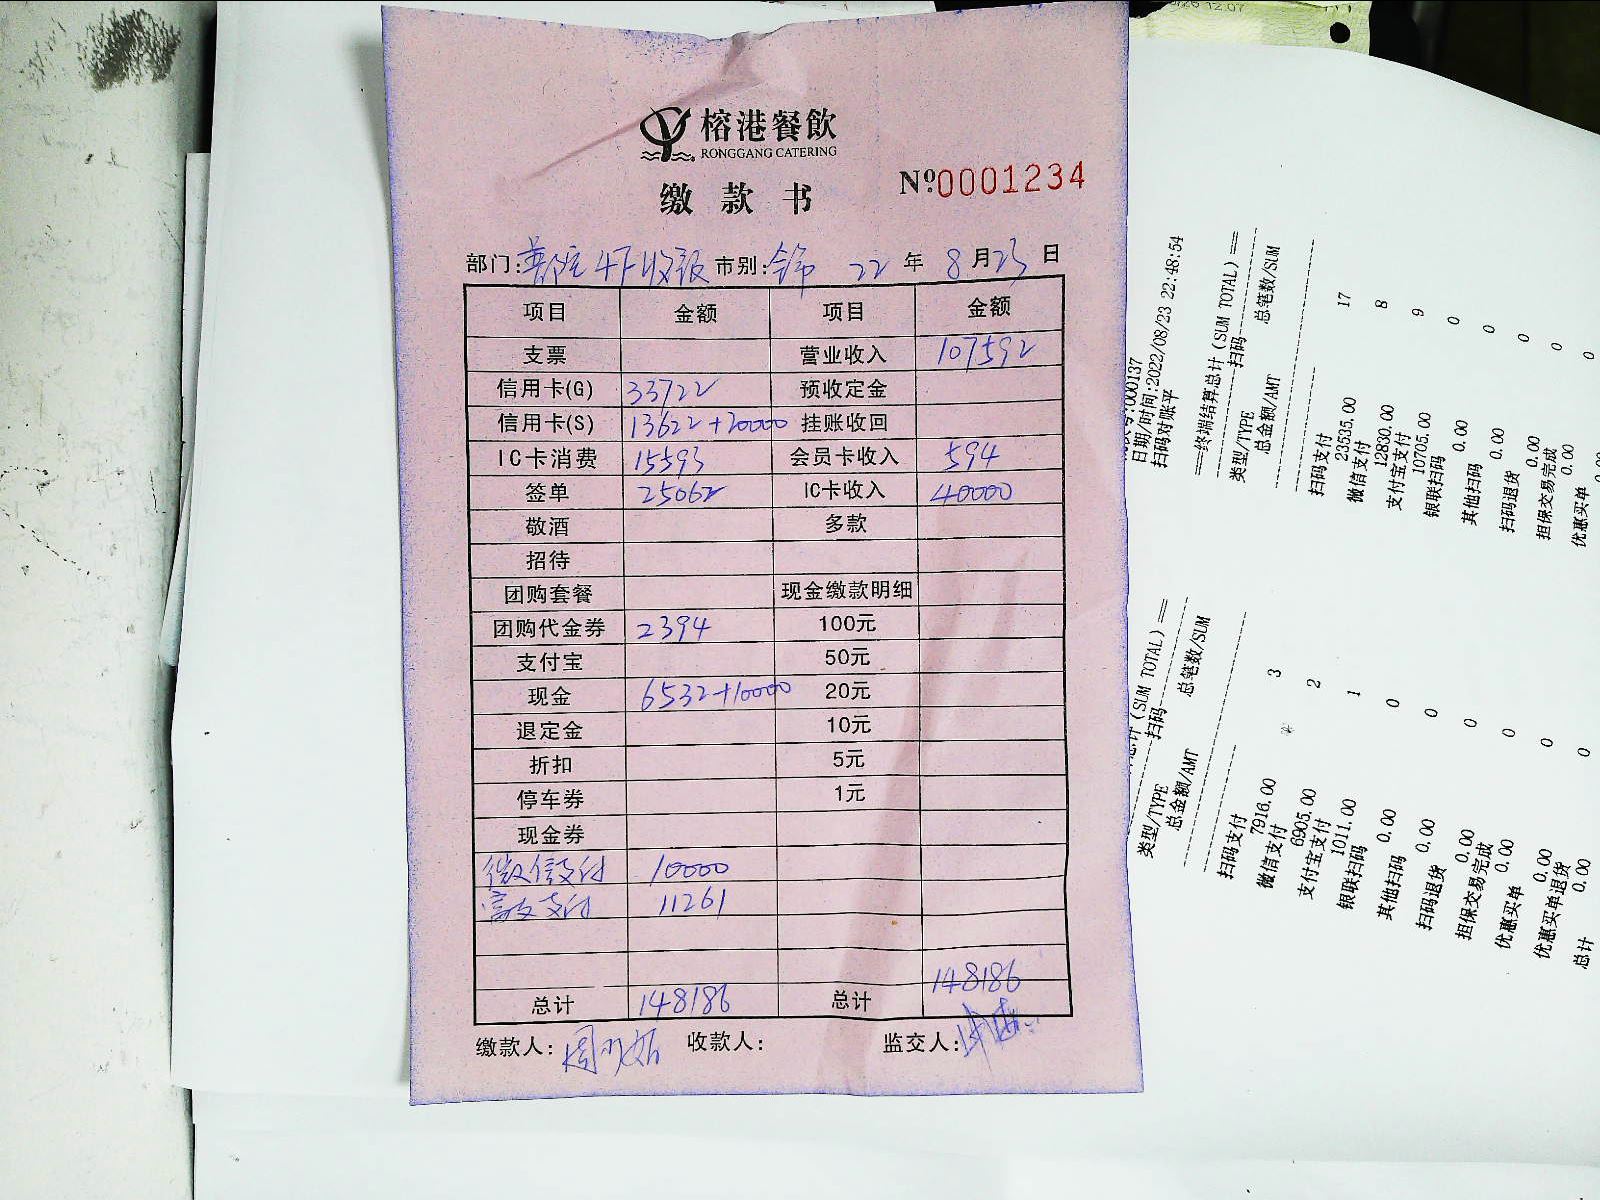 榕港餐飲
RONGGANG CATERING
缴款书
№0001234
部门: 4F收银 市别: 22年8月23日
项目 金额 项目 金额
支票 营业收入 107592
信用卡(G) 33722 预收定金
信用卡(S) 13622+20000 挂账收回
IC卡消费 15593 会员卡收入 594
签单 25062 IC卡收入 40000
敬酒 多款
招待
团购套餐 现金缴款明细
团购代金券 2394 100元
支付宝 50元
现金 6532+10000 20元
退定金 10元
折扣 5元
停车券 1元
现金券
微信支付 10000
富友支付 11261
148186
总计 148186 总计
缴款人: 收款人: 监交人:
12:07
:000137
日期/时间:2022/08/23 22:48:54
扫码对账平
==终端结算总计(SUM TOTAL)==
扫码
类型/TYPE 总笔数/SUM
总金额/AMT
扫码支付 17
23535.00
微信支付 8
12830.00
支付宝支付 9
10705.00
银联扫码 0
0.00
其他扫码 0
0.00
扫码退货 0
0.00
担保交易完成 0
0.00
优惠买单 0
总计(SUM TOTAL)==
扫码
类型/TYPE 总笔数/SUM
总金额/AMT
扫码支付 3
7916.00
微信支付 2
6905.00
支付宝支付 1
1011.00
银联扫码 0
0.00
其他扫码 0
0.00
扫码退货 0
0.00
担保交易完成 0
0.00
优惠买单 0
0.00
优惠买单退货 0
0.00
总计